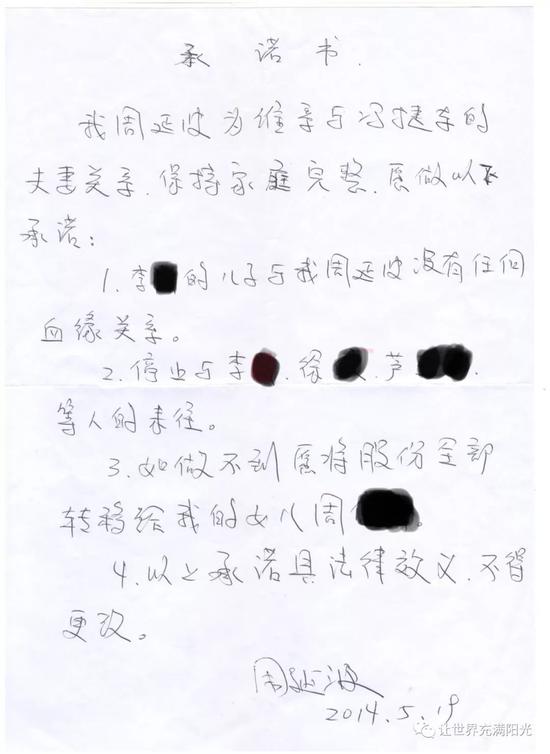 承诺书.
我周延波为维系与冯捷东的
夫妻关系.保持家庭完整.愿做以下
承诺：
1.李 的儿子与我周延波没有任何
血缘关系。
2.停止与李 .徐 .芦 .
等人的来往。
3.如做不到愿将股份全部
转移给我的女儿周 。
4.以上承诺具法律效义.不得
更改。
周延波
2014.5.19
让世界充满阳光